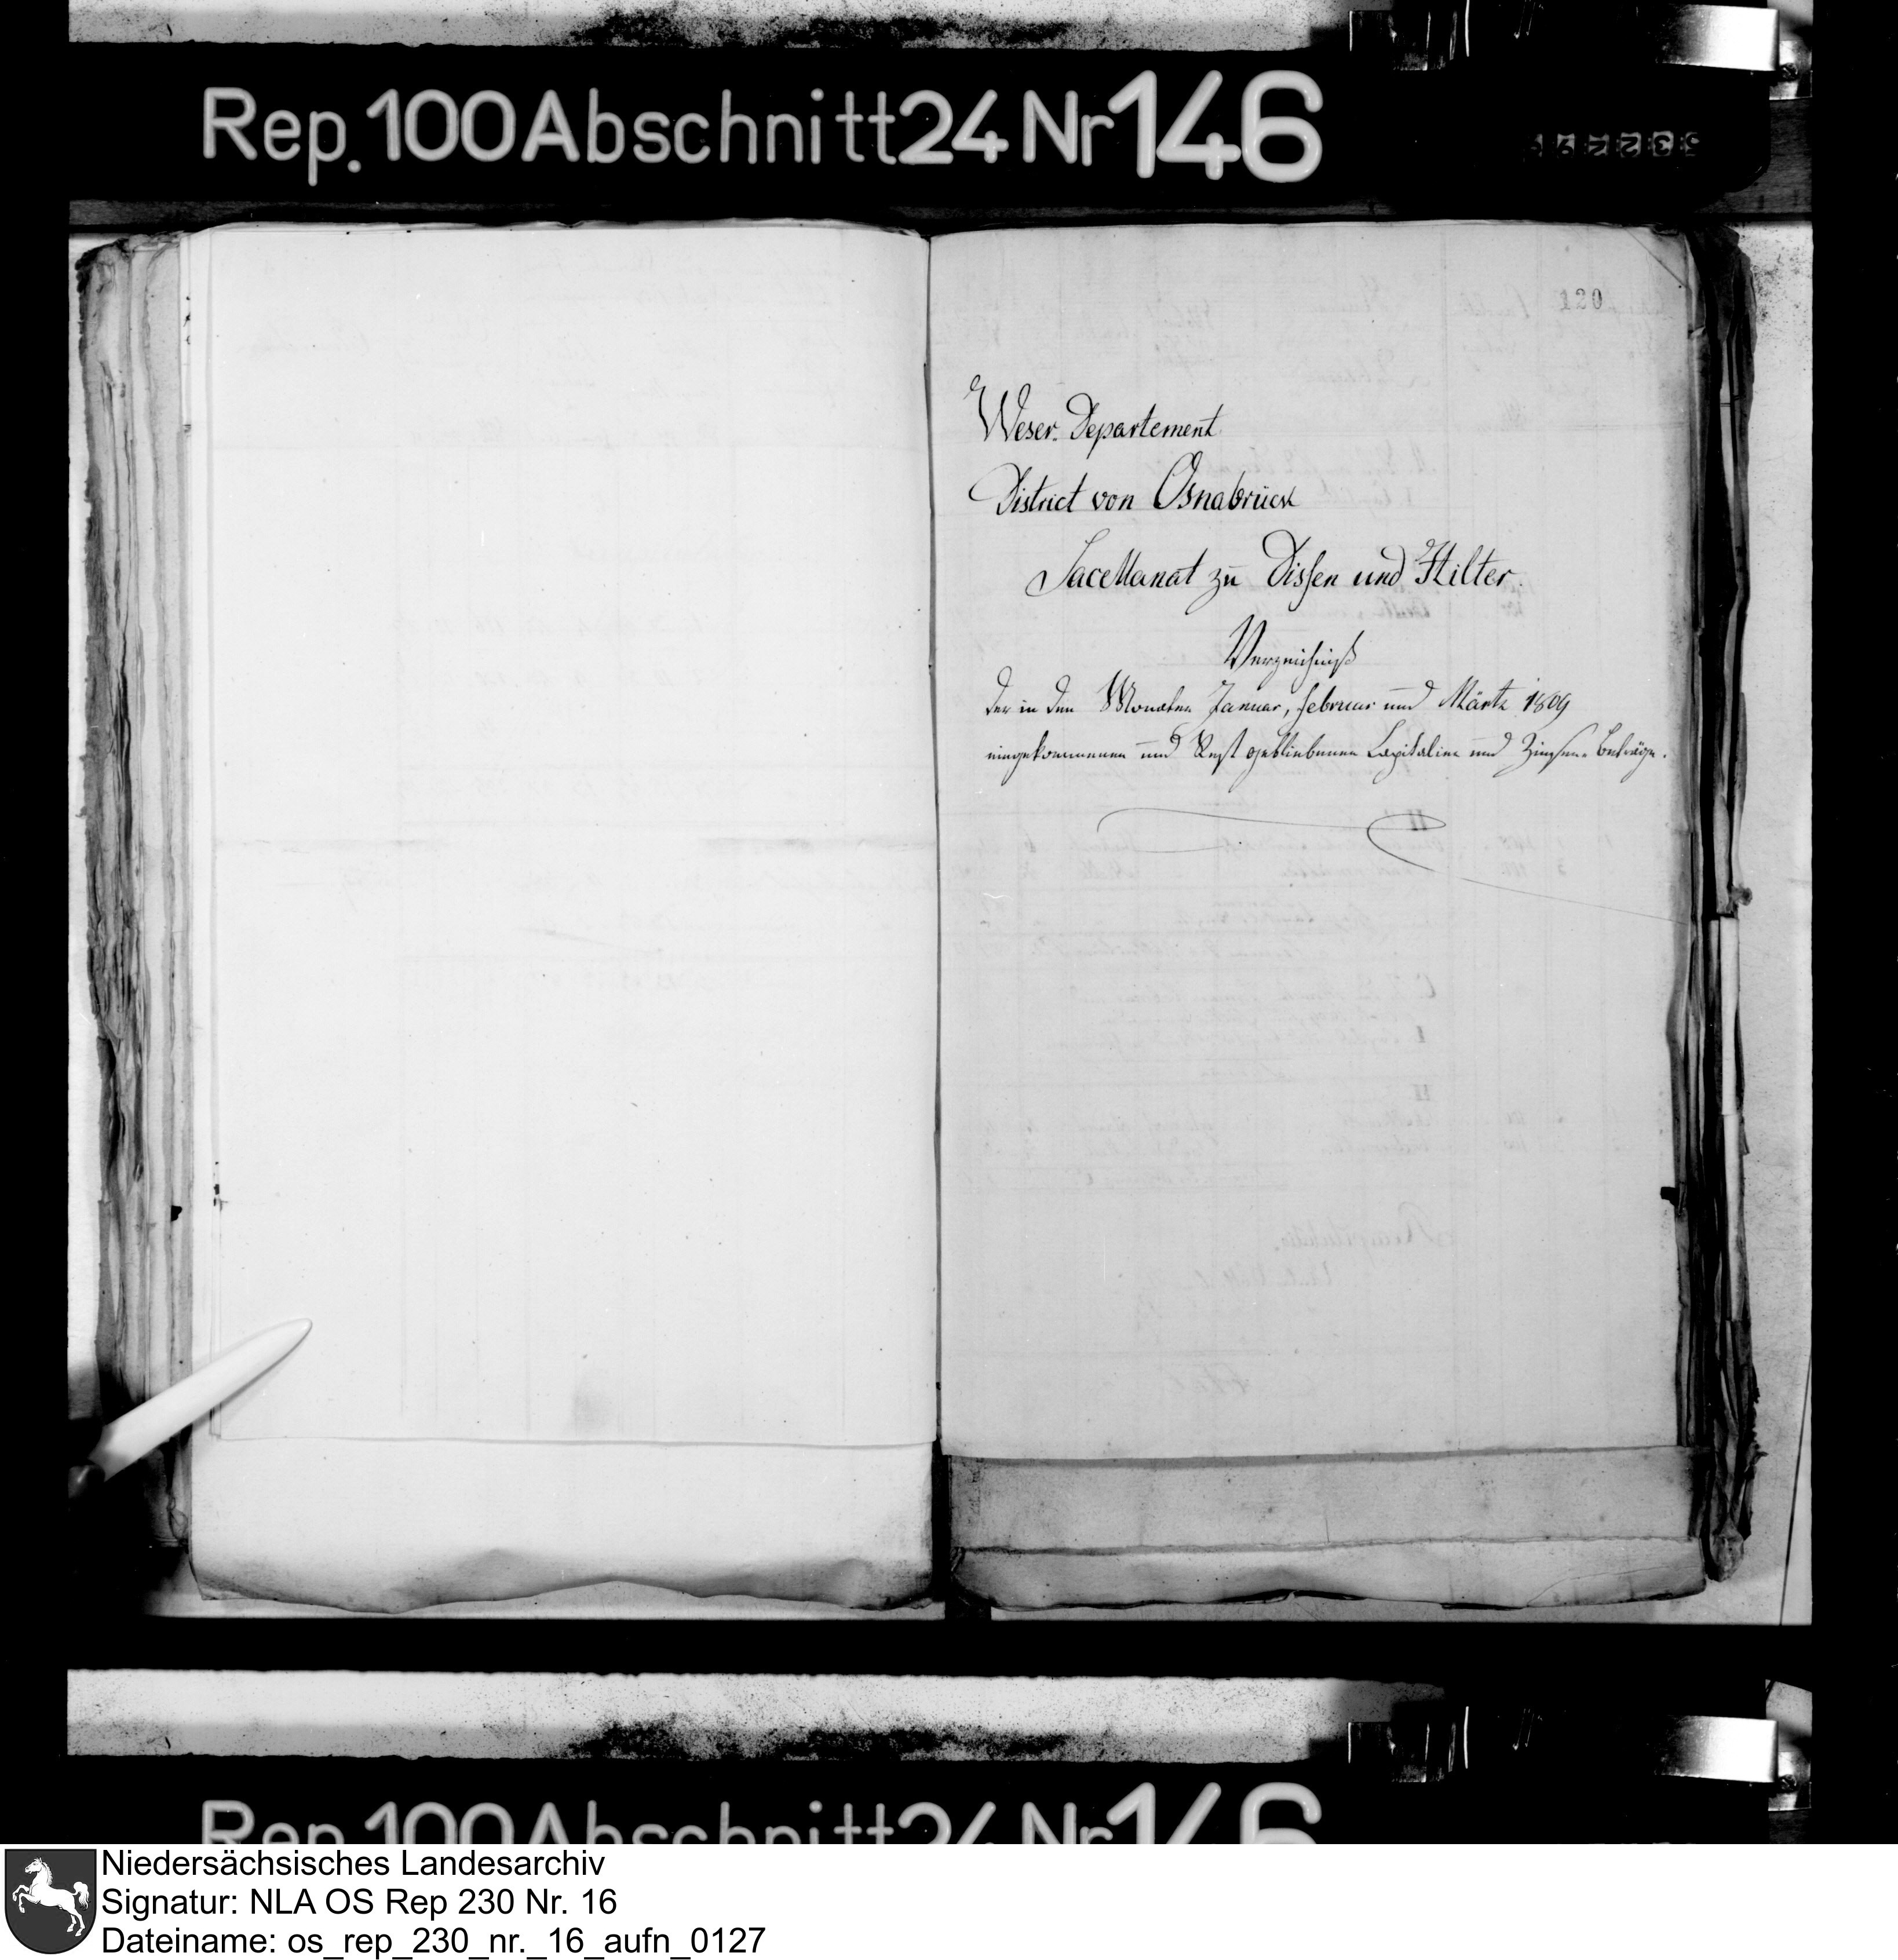 Rep. 100 Abschnitt 24 Nr 146
120
Weser. Departement
District von Osnabrück
Sacellanat zu Dissen und Hilter.
Verzeichniß
der in den Monaten Januar, Februar und Märtz 1809
eingekommenen und Rest gebliebenen Capitalien und Zinsen-Beträge.
Rep. 100 Abschnitt 24 Nr 146
Niedersächsisches Landesarchiv
Signatur: NLA OS Rep 230 Nr. 16
Dateiname: os_rep_230_nr._16_aufn_0127